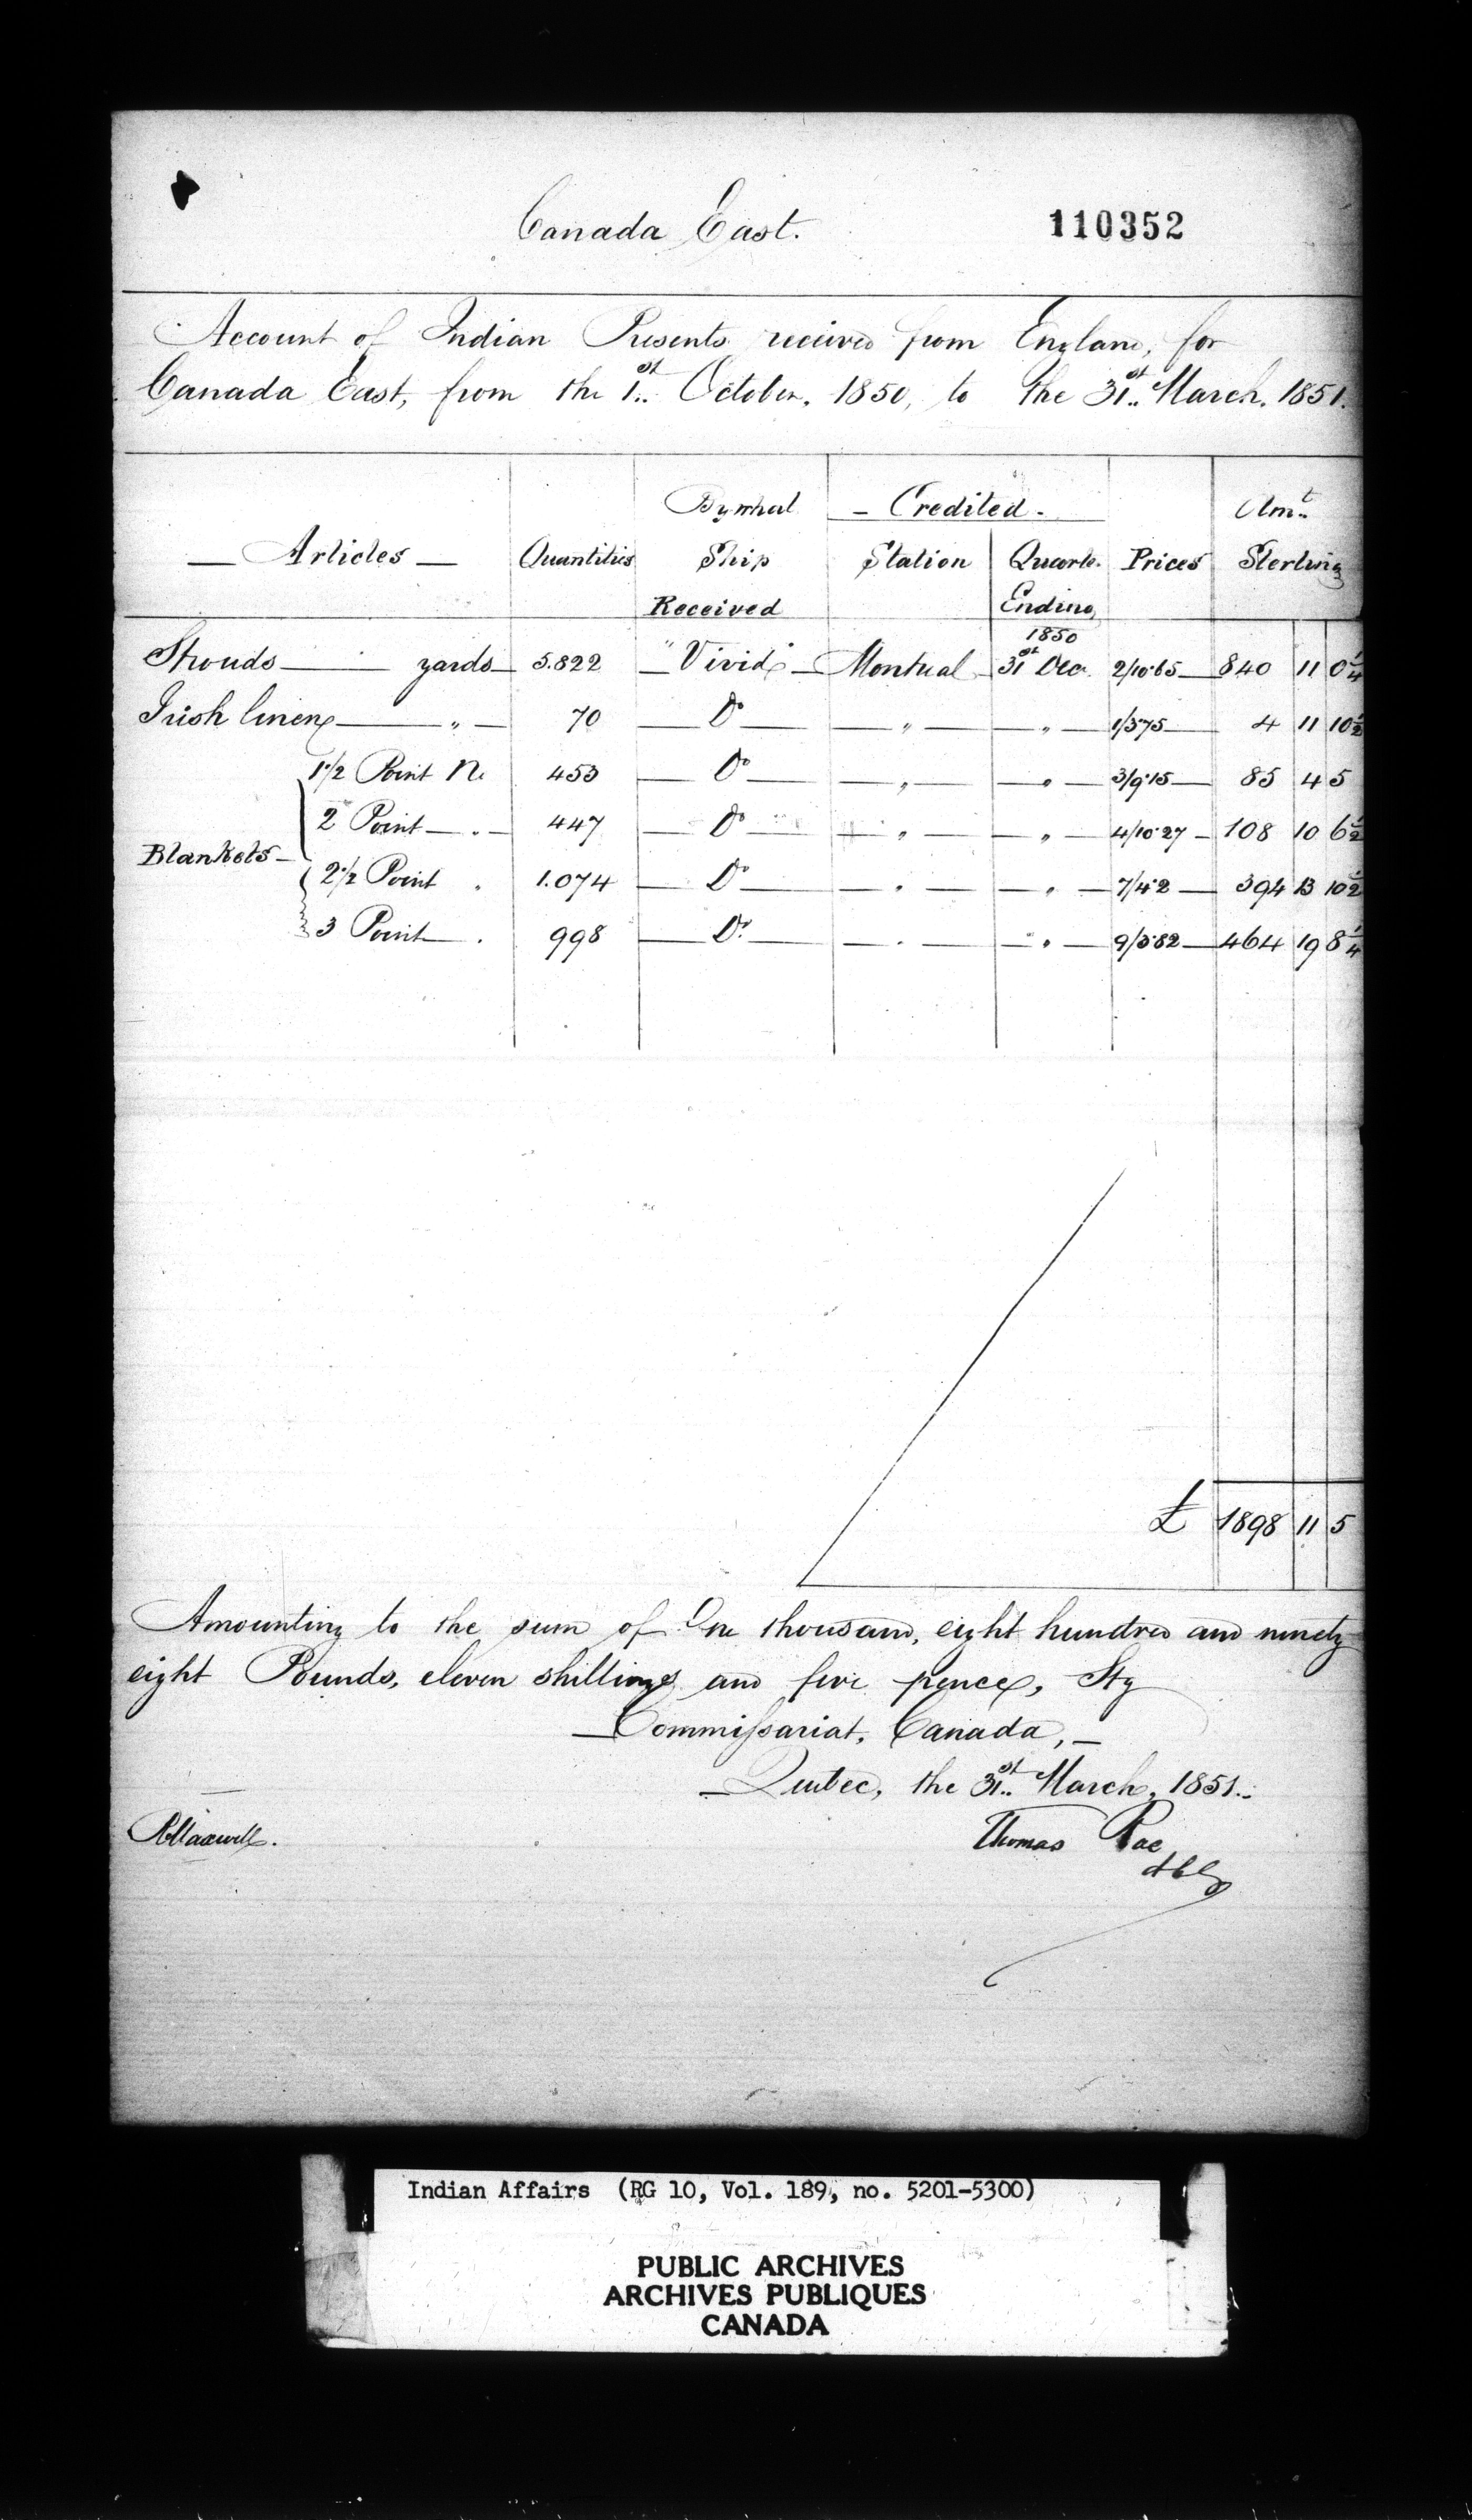 Canada East.
110352
Account of Indian Presents received from England, for
Canada East, from the 1st October, 1850, to the 31st March, 1851.
Articles Quantities By what Ship Received Credited Station Quarter Ending Prices Amt Sterling
1850
Strouds yards 5.822 "Vivid" Montreal 31st Dec. 2/10.65 840 11 0 1/4
Irish linen " 70 Do " " 1/3.75 4 11 10 1/2
Blankets
1 1/2 Point No 453 Do " " 3/9.15 85 4 5
2 Point " 447 Do " " 4/10.27 108 10 6 1/2
2 1/2 Point " 1.074 Do " " 7/4.2 394 13 10 1/2
3 Point " 998 Do " " 9/3.82 464 19 8 1/4
£ 1898 11 5
Amounting to the sum of One thousand, eight hundred and ninety
eight Pounds, eleven shillings and five pence, Stg
Commissariat, Canada,
Quebec, the 31st March, 1851.
RMaxwell.
Thomas Rae
Indian Affairs (RG 10, Vol. 189, no. 5201-5300)
PUBLIC ARCHIVES
ARCHIVES PUBLIQUES
CANADA